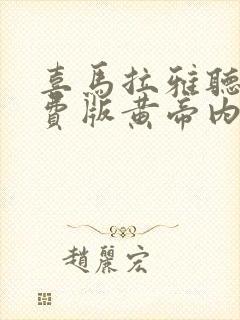 喜馬拉雅聽
費版黃帝內
趙麗宏